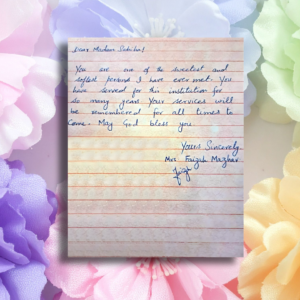 Dear Madam Sabiha!
You are one of the sweetest and
softest persons I have ever met. You
have served for this institution for
so many years. Your services will
be remembered for all times to
come. May God bless you
Yours Sincerely
Mrs. Faizah Mazhar
Faizah